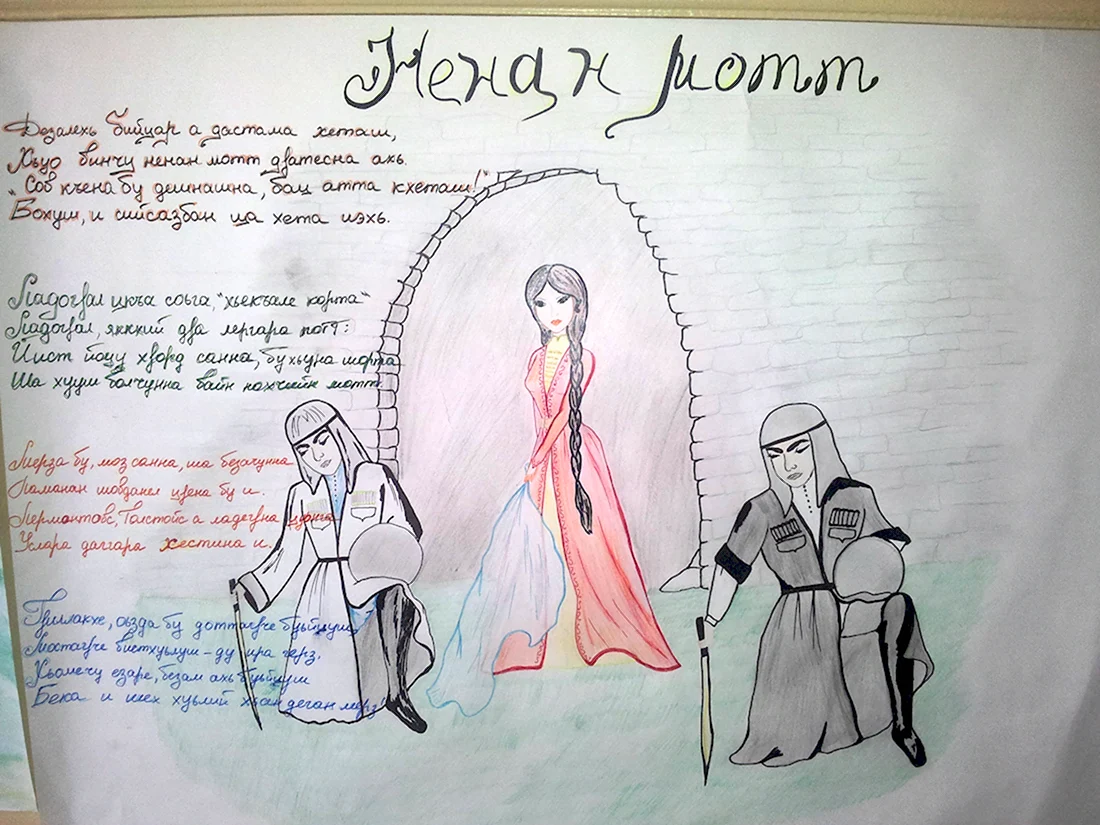 Ненан мотт
Дозалехь бийцар а дастама хеташ,
Хьуо винчу ненан мотт дӀатесна ахь.
"Сов къена бу дешнашна, бац атта кхеташ!"
Бохуш, и сийсазбан ца хета иэхь.
Ладогӏал цкъа соьга, "хьекъале корта"
Ладогӏал, яккхий дӀа лергара потт:
Йист йоцу хӀорд санна, бу хьуна шорта
Ша хууш волчунна вайн нохчийн мотт.
Мерза бу, моз санна, ша безачунна
Ламанан шовданел цӏена бу и.
Лермонтовс, Толстойс а ладегӏна цуьнга
Услара даггара хестина и.
Гӏиллакхе, оьзда бу доттагӏче буьйцуш,
Мостагӏче вистхуьлуш - ду ира герз.
Хьомечу езаре, безам ахь буьйцуш
Бека и шех хуьлий хьан деган мерз